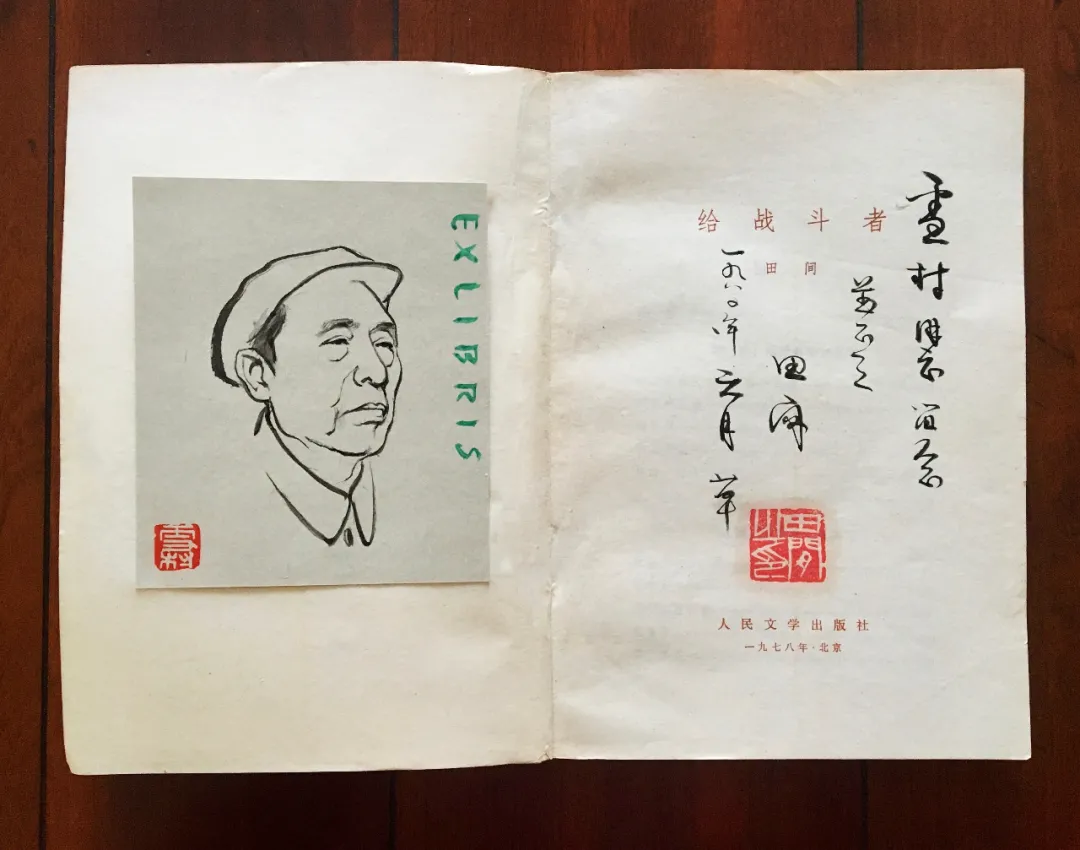 EXLIBRIS
雪村
给战斗者
田间
雪村同志留念
田间
一九八〇年 月
田間之印
人民文学出版社
一九七八年·北京